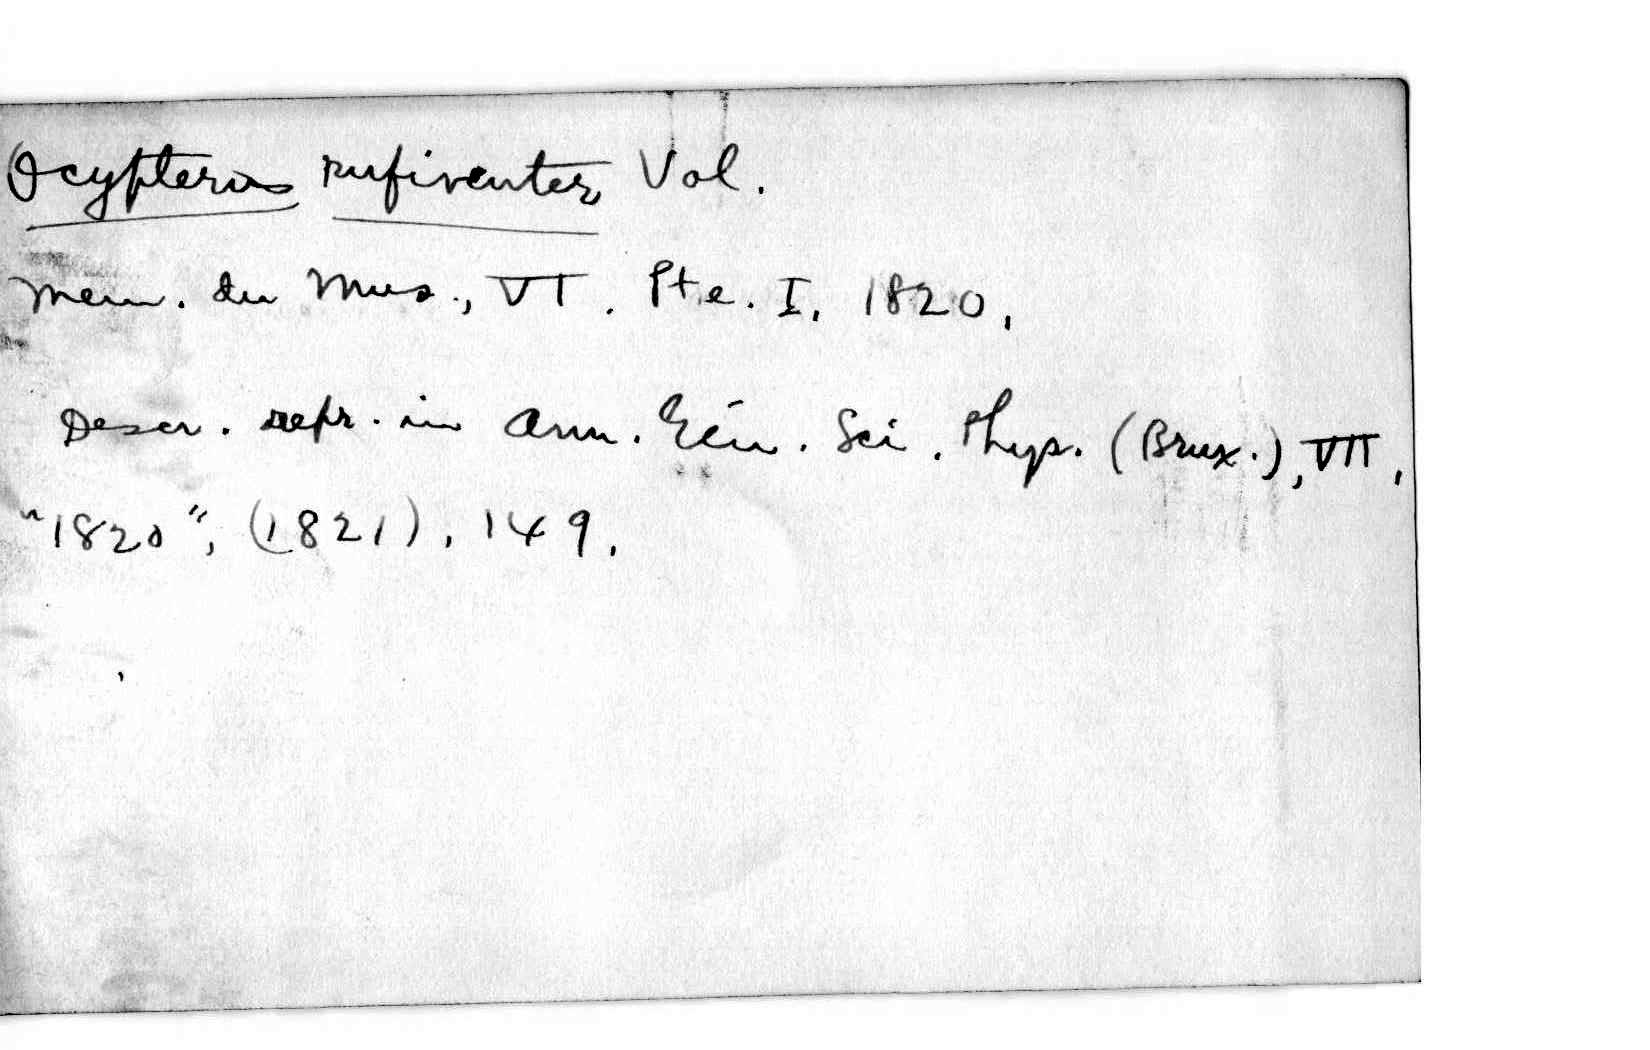 Ocypterus rufiventer Val.
Mem. du Mus., VI. Pte. I, 1820.
Descr. repr. in Ann. Gén. Sci. Phys. (Brux.), VII,
"1820", (1821), 149.